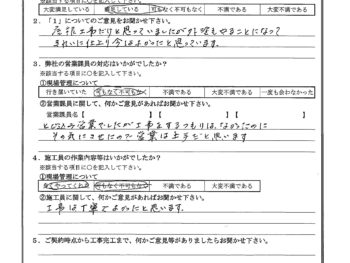 ※該当する項目に○を記入して下さい。
大変満足している 満足している 可もなく不可もなく 不満である 大変不満である
2．「１」についてのご意見をお聞かせ下さい。
だけと思っていましたが外壁もやることになって
きれいに仕上り今はよかったと思っています。
3．弊社の営業課員の対応はいかがでしたか？
※該当する項目に○を記入して下さい。
①現場管理について
行き届いていた 可もなく不可もなく 不満である 大変不満である 一度も会わなかった
②営業課員に関して、何かご意見があればお聞かせ下さい。
営業課員名【 】【 】【 】
とび込み営業でしたが工事をするつもりはなかったのに
その気にさせたので営業は上手だと思います
4．施工員の作業内容等はいかがでしたか？
※該当する項目に○を記入して下さい。
①現場管理について
よくやってくれた 可もなく不可もなく 不満である 大変不満である
②施工員に関して、何かご意見があればお聞かせ下さい。
工事は丁寧でよかったと思います。
5．ご契約時点から工事完工まで、何かご意見等がありましたらお聞かせ下さい。